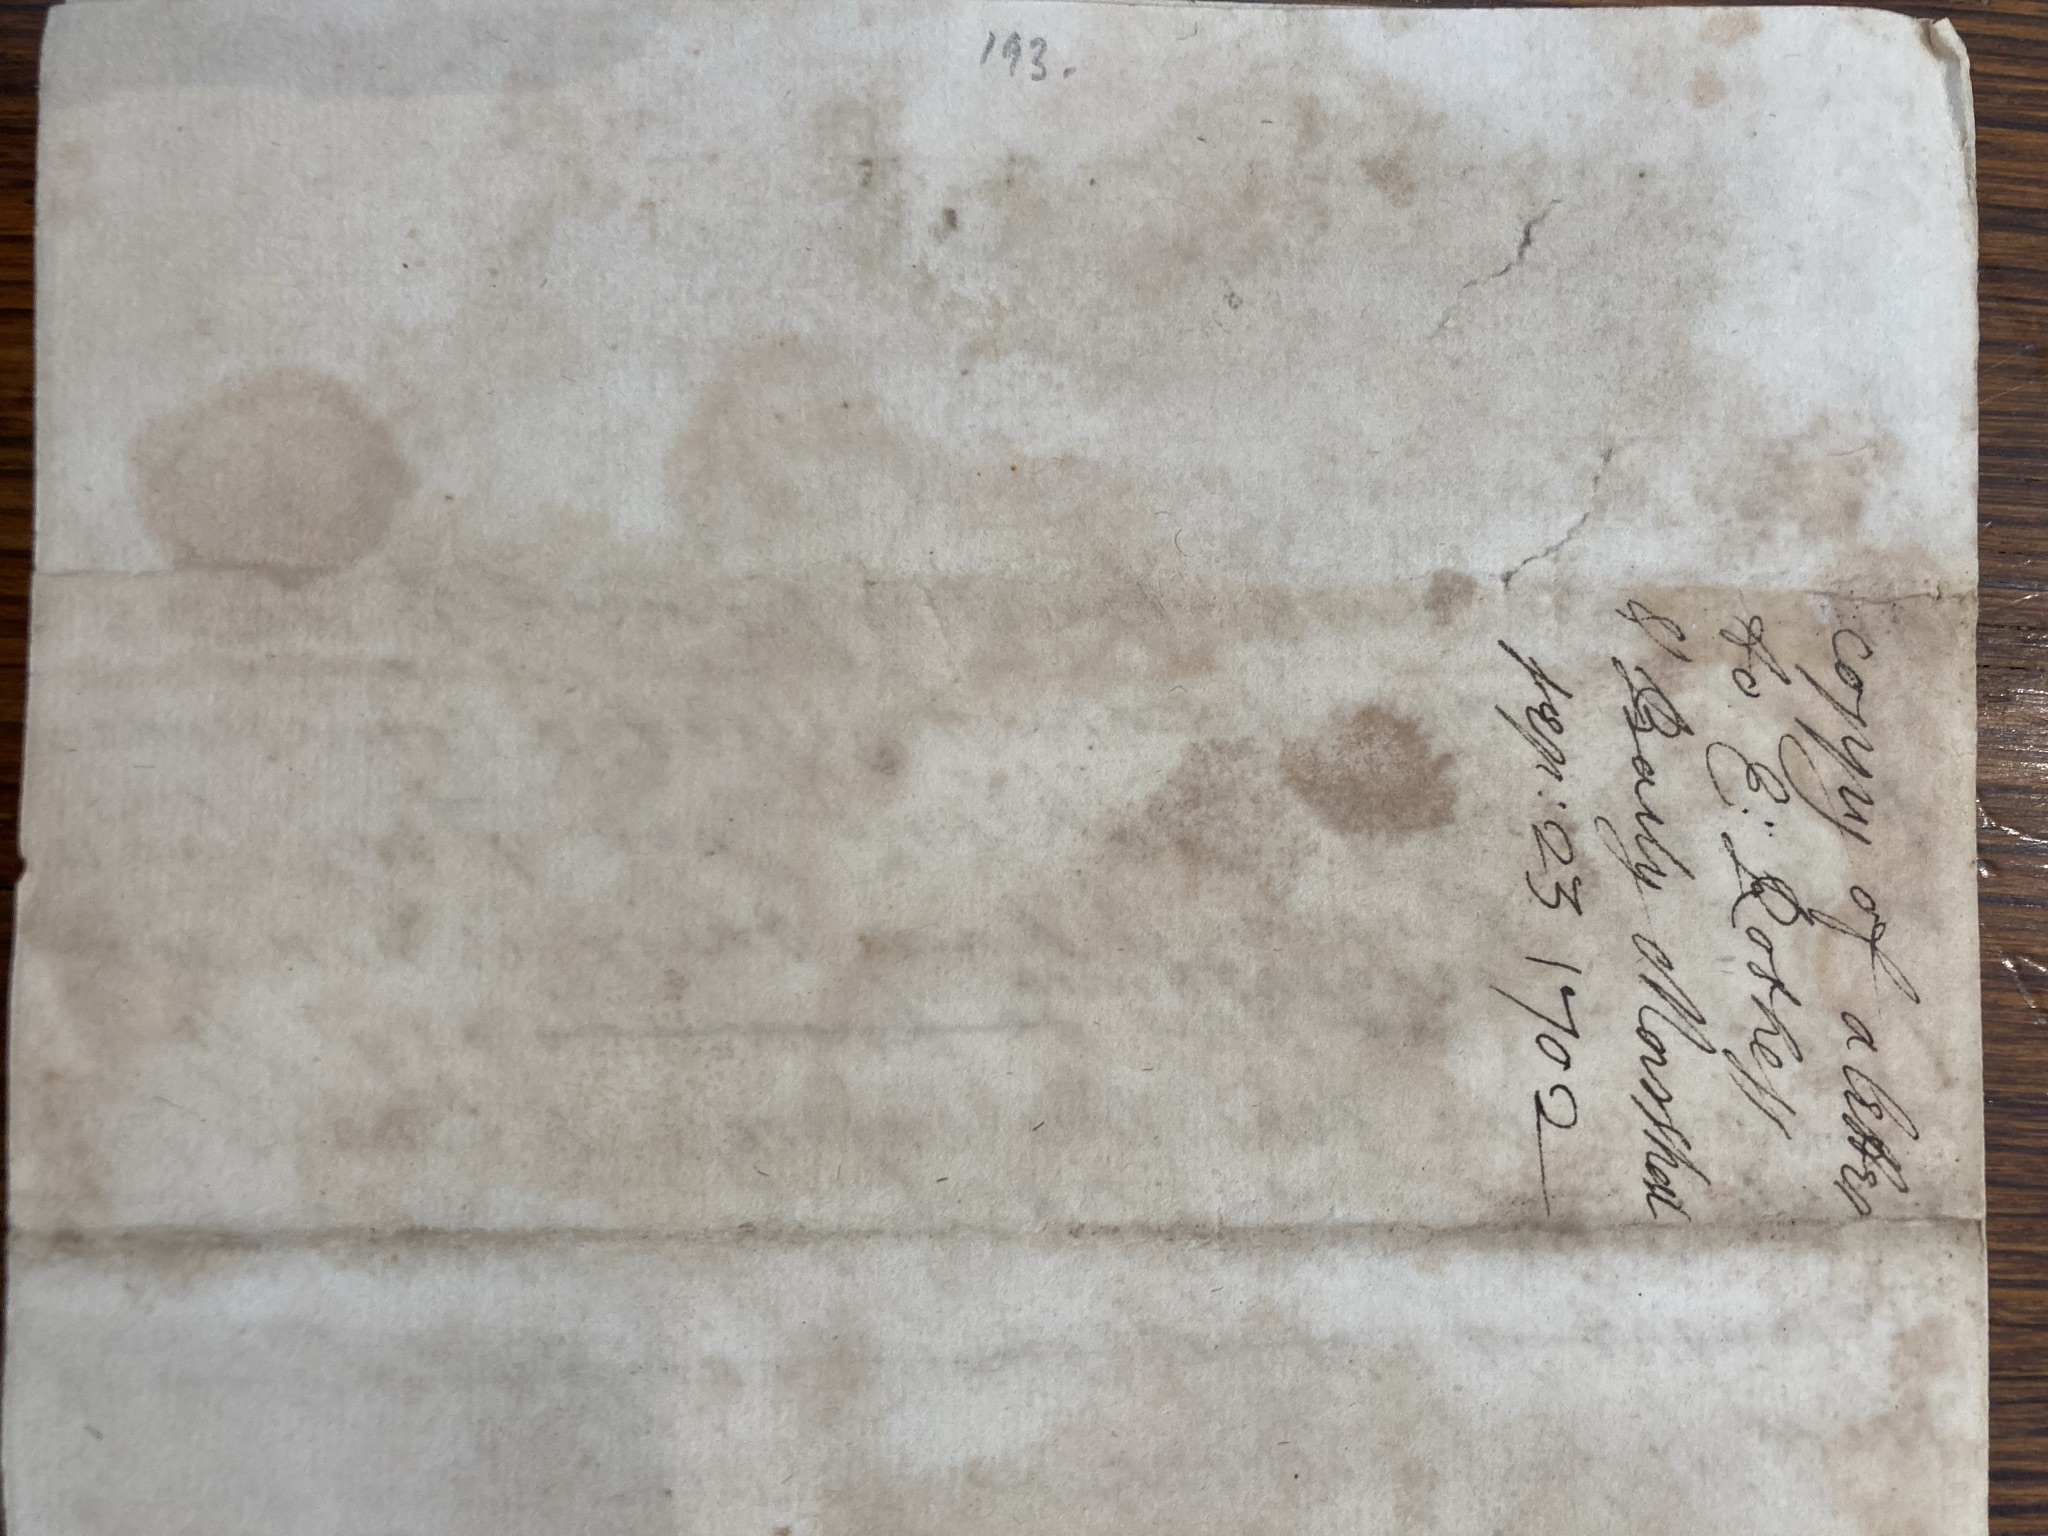 coppy of a letter
to E: Rothess
& Baily Marshall
sep: 23 1702
193.